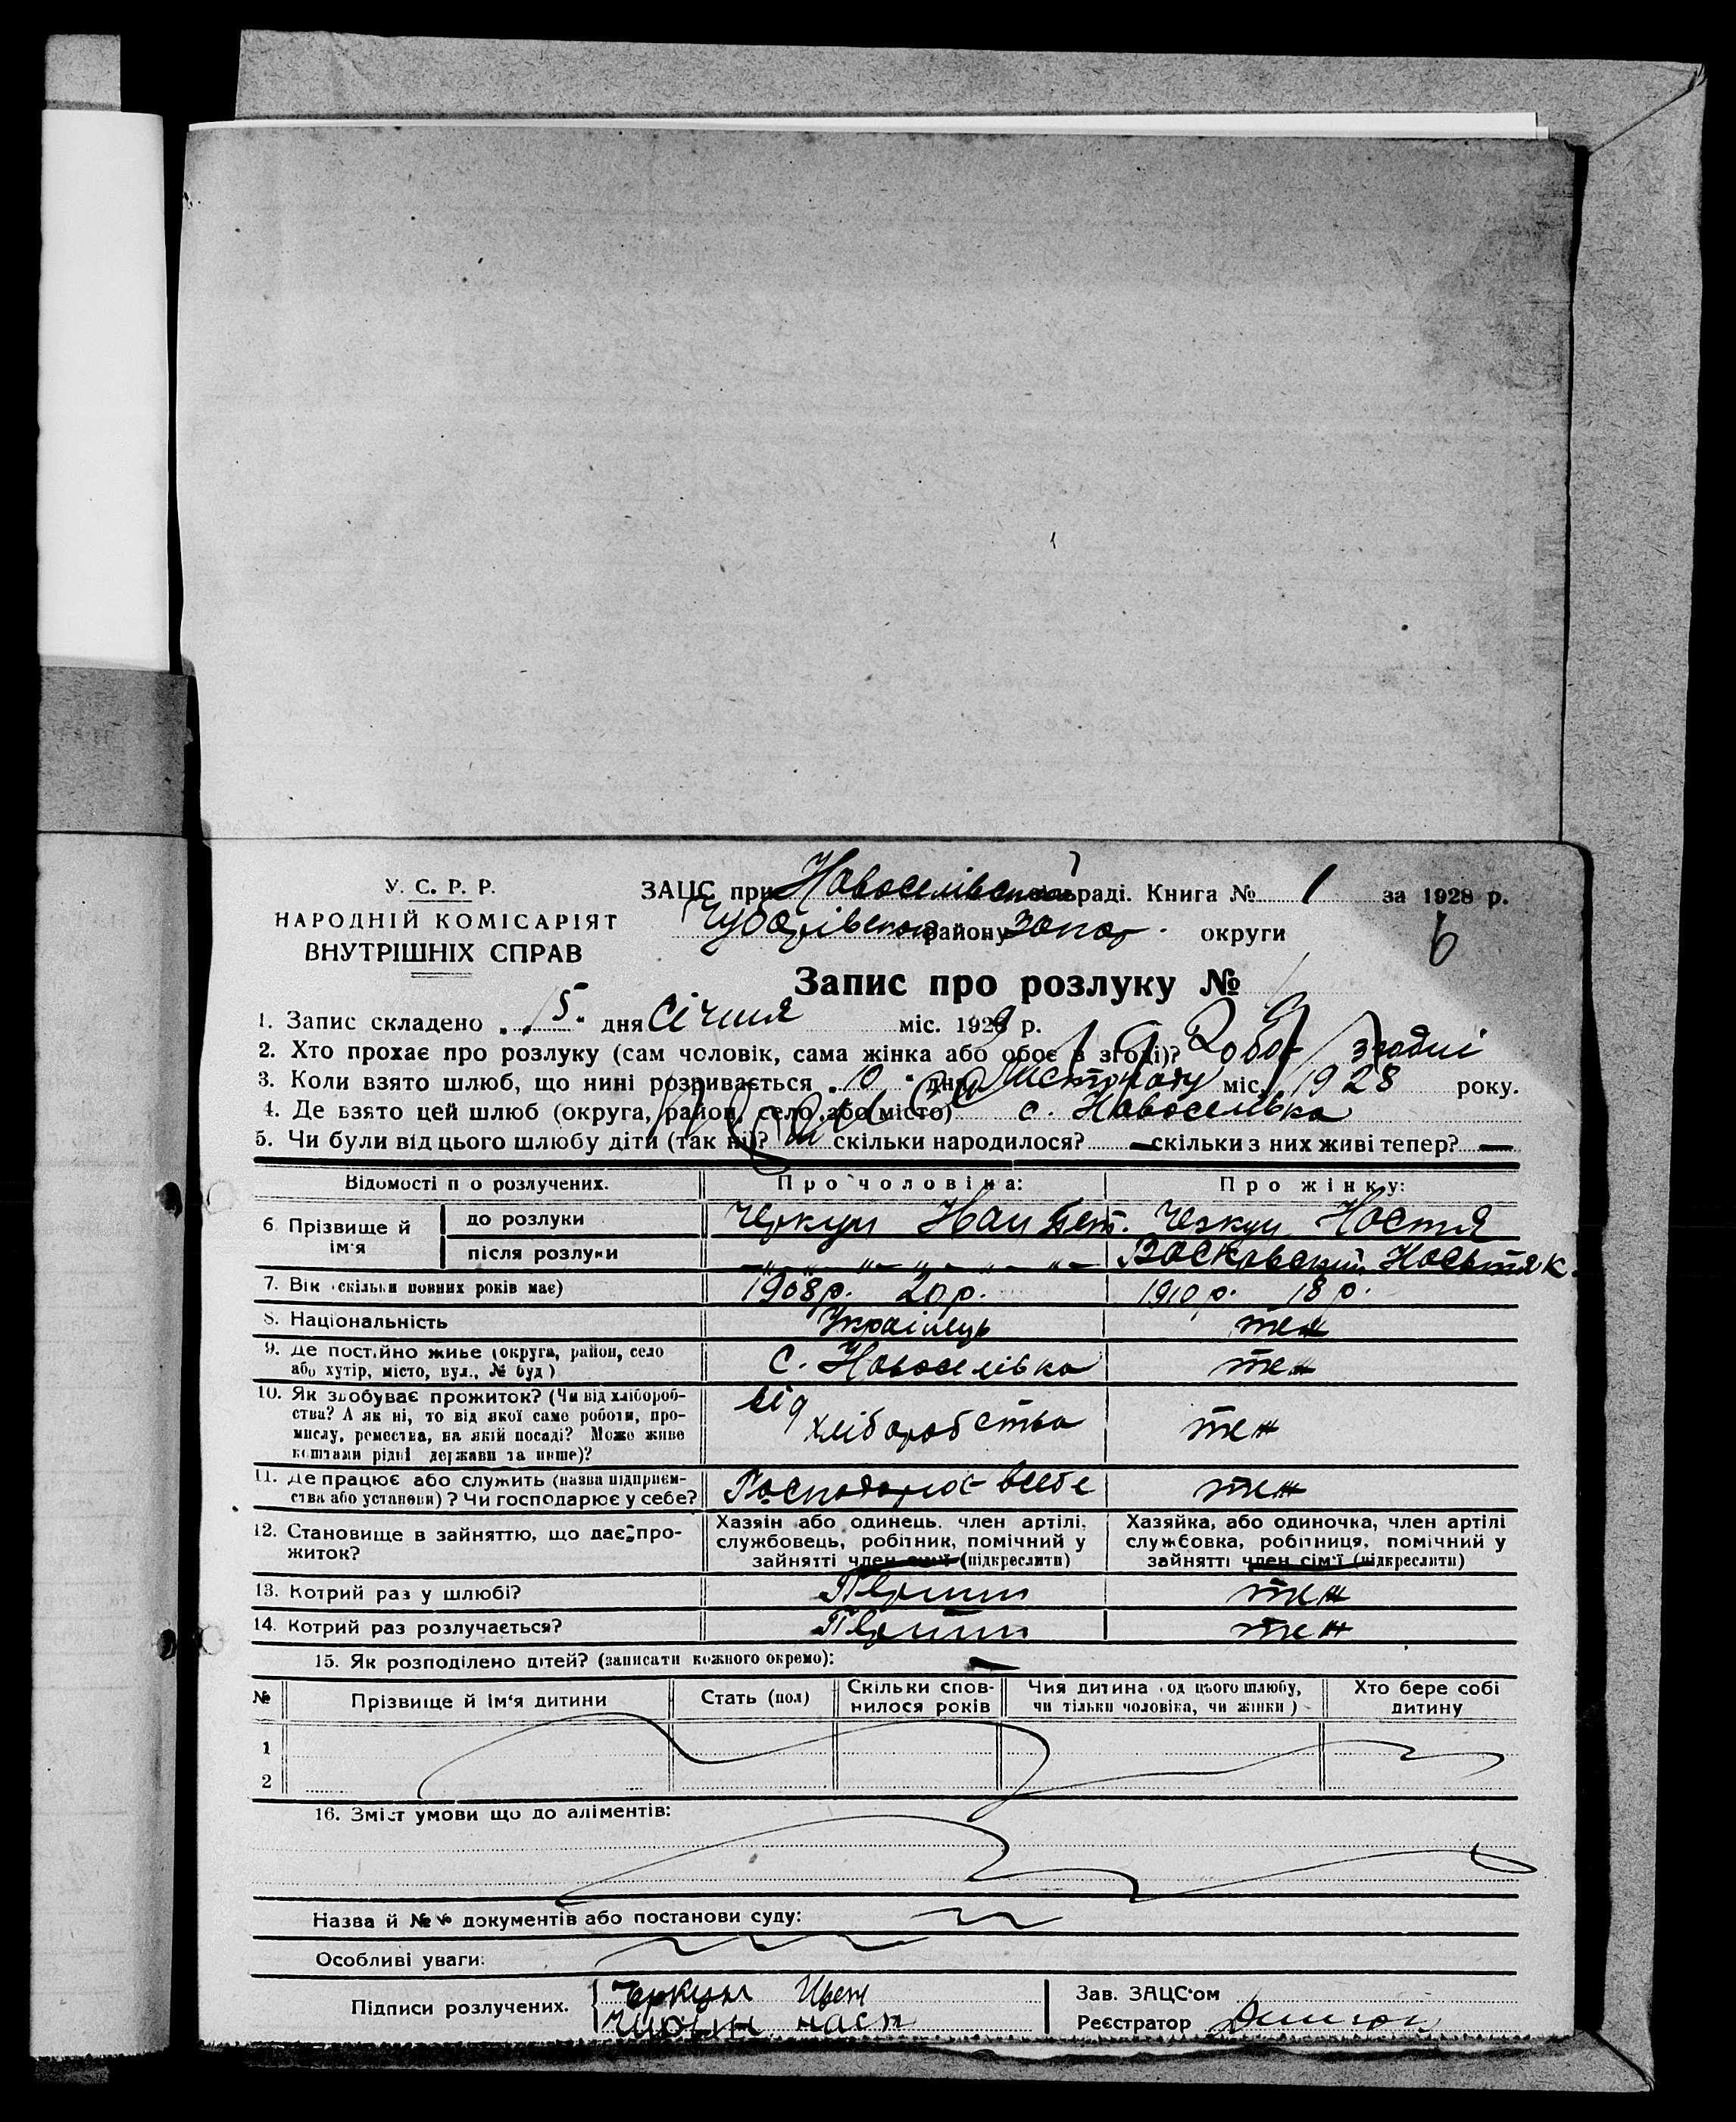 У. С. Р. Р.
НАРОДНІЙ КОМІСАРІЯТ
ВНУТРІШНІХ СПРАВ
ЗАЦС при Новоселівській сільраді. Книга № 1 за 1928 р.
району Запор. округи
6
Запис про розлуку №
1. Запис складено „ 5 " дня Січня міс. 1929 р.
2. Хто прохає про розлуку (сам чоловік, сама жінка або обоє в згоді)?
3. Коли взято шлюб, що нині розривається „ 10 " дня Листопаду міс. 1928 року.
4. Де взято цей шлюб (округа, район, село або місто) с. Новоселівка
5. Чи були від цього шлюбу діти (так ні)? ні скільки народилося? — скільки з них живі тепер? —
Відомости п о розлучених. Про чоловіка: Про жінку:
6. Прізвище й ім'я до розлуки Черкун Черкун Настя
після розлуки
7. Вік (скільки повних років має) 1908 р. 20 р. 1910 р. 18 р.
8. Національність Українець теж
9. Де постійно живе (округа, район, село
або хутір, місто, вул., № буд) с. Новоселівка теж
10. Як здобуває прожиток? (Чи від хлібороб-
ства? А як ні, то від якої саме роботи, про-
мислу, ремества, на якій посаді? Може живе
коштами рідні держави та инше)? від хліборобства теж
11. Де працює або служить (назва підприєм-
ства або установи)? Чи господарює у себе? Господарює в себе теж
12. Становище в зайняттю, що дає про-
житок?
Хазяін або одинець, член артілі,
службовець, робітник, помічний у
зайнятті член сім'ї (підкреслити)
Хазяйка, або одиночка, член артілі
службовка, робітниця, помічний у
зайнятті член сім'ї (підкреслити)
13. Котрий раз у шлюбі? Перший теж
14. Котрий раз розлучається? Перший теж
15. Як розподілено дітей? (записати кожного окремо): —
№ Прізвище й ім'я дитини Стать (пол) Скільки спов-
нилося років Чия дитина (од цього шлюбу,
чи тільки чоловіка, чи жінки) Хто бере собі
дитину
1
2
16. Зміст умови що до аліментів:
Назва й №№ документів або постанови суду:
Особливі уваги:
Підписи розлучених. Черкун
Зав. ЗАЦС'ом
Реєстратор